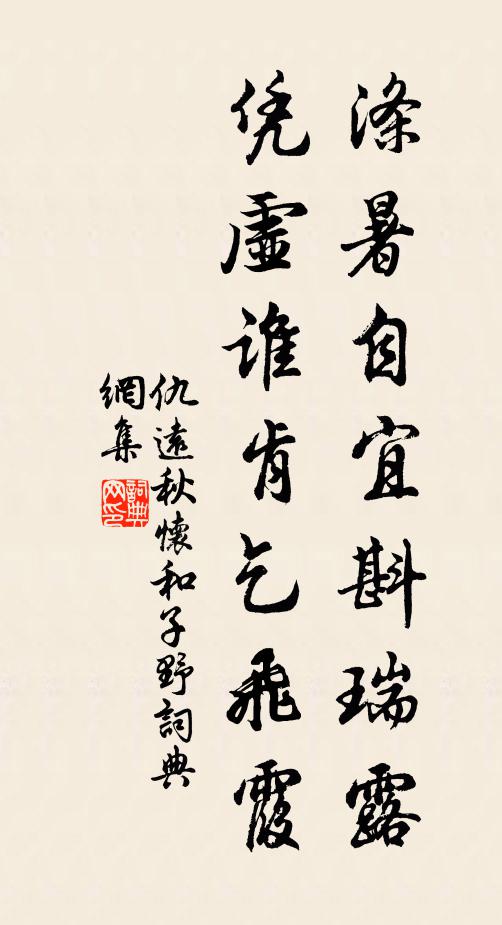 滌暑自宜斟瑞露
凭虛誰肯乞飛霞
仇遠秋懷和子野詞典
網集
詞典網印